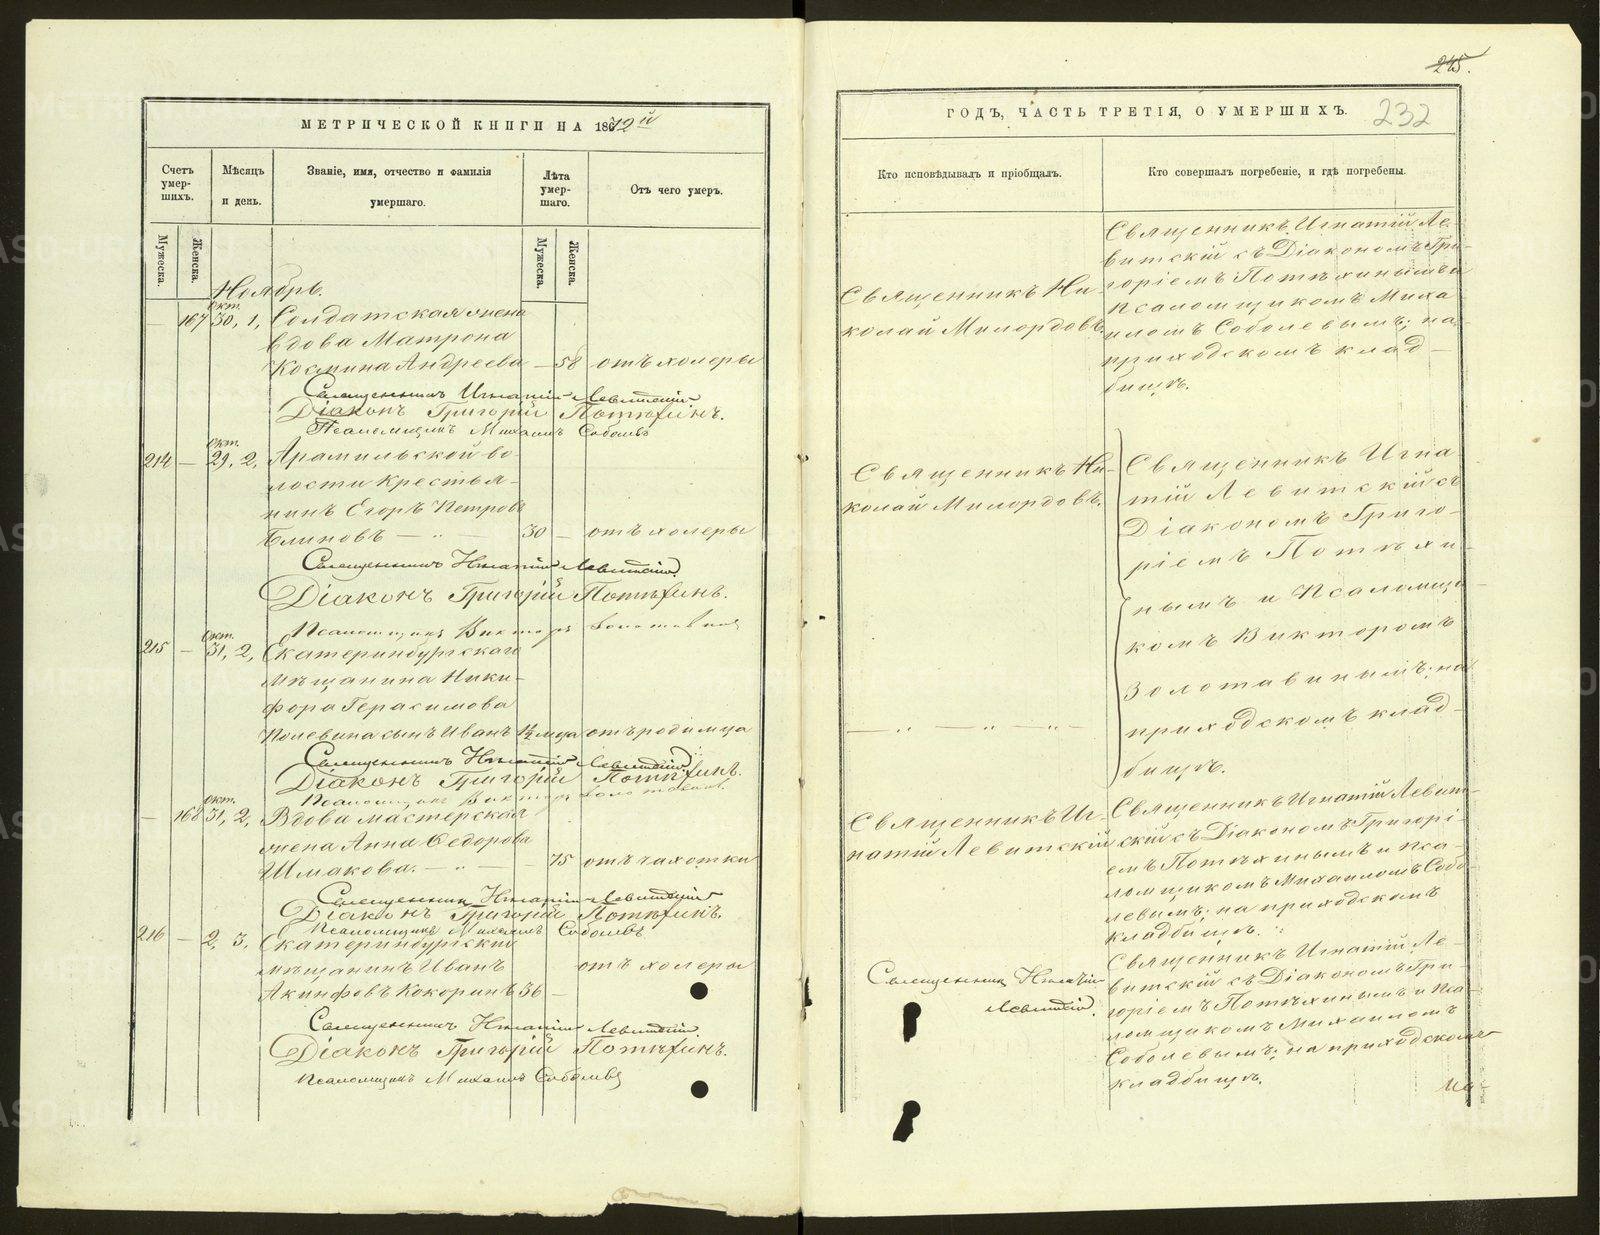 245.
МЕТРИЧЕСКОЙ КНИГИ НА 1872й
ГОДЪ, ЧАСТЬ ТРЕТІЯ, О УМЕРШИХЪ.
232
Счетъ умер-шихъ.
Мѣсяцъ и день.
Званіе, имя, отчество и фамилія умершаго.
Лѣта умер-шаго.
Отъ чего умеръ.
Кто исповѣдывалъ и пріобщалъ.
Кто совершалъ погребеніе, и гдѣ погребены.
Мужеска.
Женска.
Мужеска.
Женска.
Ноябрь.
Окт.
— 167 30, 1, Солдатская жена
вдова Матрона
Космина Андреева — 58 отъ холеры
Священникъ Игнатій Левитскій
Діаконъ Григорій Потѣхинъ.
Псаломщикъ Михаилъ Соболевъ
Окт.
214 — 29, 2, Арамильской во-
лости крестья-
нинъ Егоръ Петровъ
Блиновъ — „ — 30 — отъ холеры
Священникъ Игнатій Левитскій
Діаконъ Григорій Потѣхинъ.
Псаломщикъ Викторъ Золотавинъ
Окт.
215 — 31, 2, Екатеринбургскаго
мѣщанина Ники-
фора Герасимова
Полевина сынъ Иванъ 1½ м-ца отъ родимца
Священникъ Игнатій Левитскій
Діаконъ Григорій Потѣхинъ.
Псаломщикъ Викторъ Золотавинъ
Окт.
— 168 31, 2, Вдова мастерская
жена Анна Ѳедорова
Шмакова. — „ — — 75 отъ чахотки
Священникъ Игнатій Левитскій
Діаконъ Григорій Потѣхинъ.
Псаломщикъ Михаилъ Соболевъ
216 — 2, 3, Екатеринбургскій
мѣщанинъ Иванъ отъ холеры
Акинфовъ Кокоринъ 36 —
Священникъ Игнатій Левитскій
Діаконъ Григорій Потѣхинъ.
Псаломщикъ Михаилъ Соболевъ
Священникъ Ни-
колай Милордовъ.
Священникъ Игнатій Ле-
витскій съ Діакономъ Гри-
горіемъ Потѣхинымъ и
псаломщикомъ Миха-
иломъ Соболевымъ; на
приходскомъ клад-
бищѣ.
Священникъ Ни-
колай Милордовъ.
— „ — „ — „ —
Священникъ Игна-
тій Левитскій съ
Діакономъ Григо-
ріемъ Потѣхи-
нымъ и Псаломщи-
комъ Викторомъ
Золотавинымъ; на
приходскомъ клад-
бищѣ.
Священникъ Иг-
натій Левитскій
Священникъ Игнатій Левит-
скій съ Діакономъ Григорі-
емъ Потѣхинымъ и пса-
ломщикомъ Михаиломъ Собо-
левымъ; на приходскомъ
кладбищѣ.
Священникъ Игнатій
Левитскій.
Священникъ Игнатій Ле-
витскій съ Діакономъ Гри-
горіемъ Потѣхинымъ и пса-
ломщикомъ Михаиломъ
Соболевымъ; на приходскомъ
кладбищѣ.